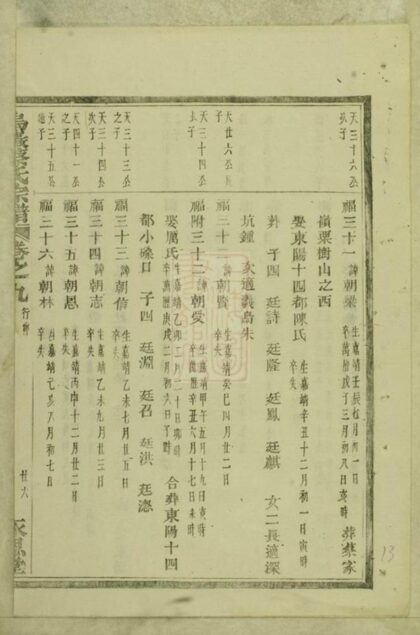 天三十六公
長子
福三十一 諱朝樂 生嘉靖壬辰 月 一日 時 葬蔡家
卒萬曆戊子三月初八日亥時
嶺栗樹山之西
娶東陽十四都陳氏 生嘉靖辛丑十二月初一日寅時
卒失
葬 子四 廷詩 廷隆 廷鳳 廷麒 女二長適深
坑鍾 次適義烏朱
天廿六公
子
福三十 諱朝 生嘉靖癸巳四月廿二日
卒失
天三十四公
長子
福附三十二 諱朝受 生嘉靖甲午五月十九日亥時
卒萬曆辛丑六月十七日未時
娶厲氏 生嘉靖乙卯二月二十日 時
卒萬曆庚戌二月初六日子時 合葬東陽十四
都小磉口 子四 廷淵 廷召 廷洪 廷
天三十三公
之子
福三十三 諱朝信 生嘉靖乙未七月廿五日
卒失
天三十四公
次子
福三十四 諱朝志 生嘉靖乙未九月廿三日
卒失
天四十一公
之子
福三十五 諱朝恩 生嘉靖丙申十二月廿二日
卒失
天三十五公
子
福三十六 諱朝林 生嘉靖己亥八月初七日
卒失
氏宗譜 卷之九 行 廿六 永思堂
13